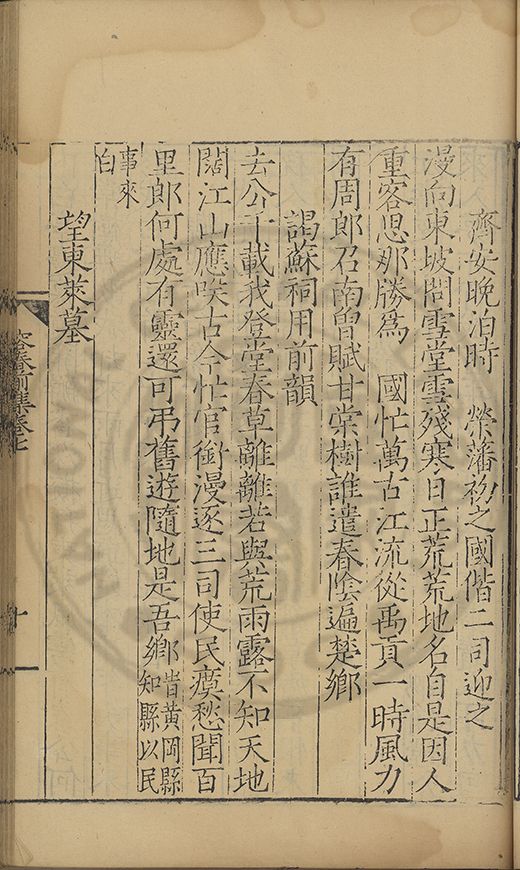 齊安晚泊時　榮藩初之國偕二司迎之
漫向東坡問雪堂雪殘寒日正荒荒地名自是因人
重客思那勝為　國忙萬古江流從禹貢一時風力
有周郎召南曾賦甘棠樹誰遣春陰遍楚鄉
謁蘇祠用前韻
去公千載我登堂春草離離若與荒雨露不知天地
闊江山應咲古今忙官銜漫逐三司使民瘼愁聞百
里郎何處有靈還可弔舊遊隨地是吾鄉昔黃岡縣
知縣以民
事來
泊
望東萊墓
容春前集卷七
十